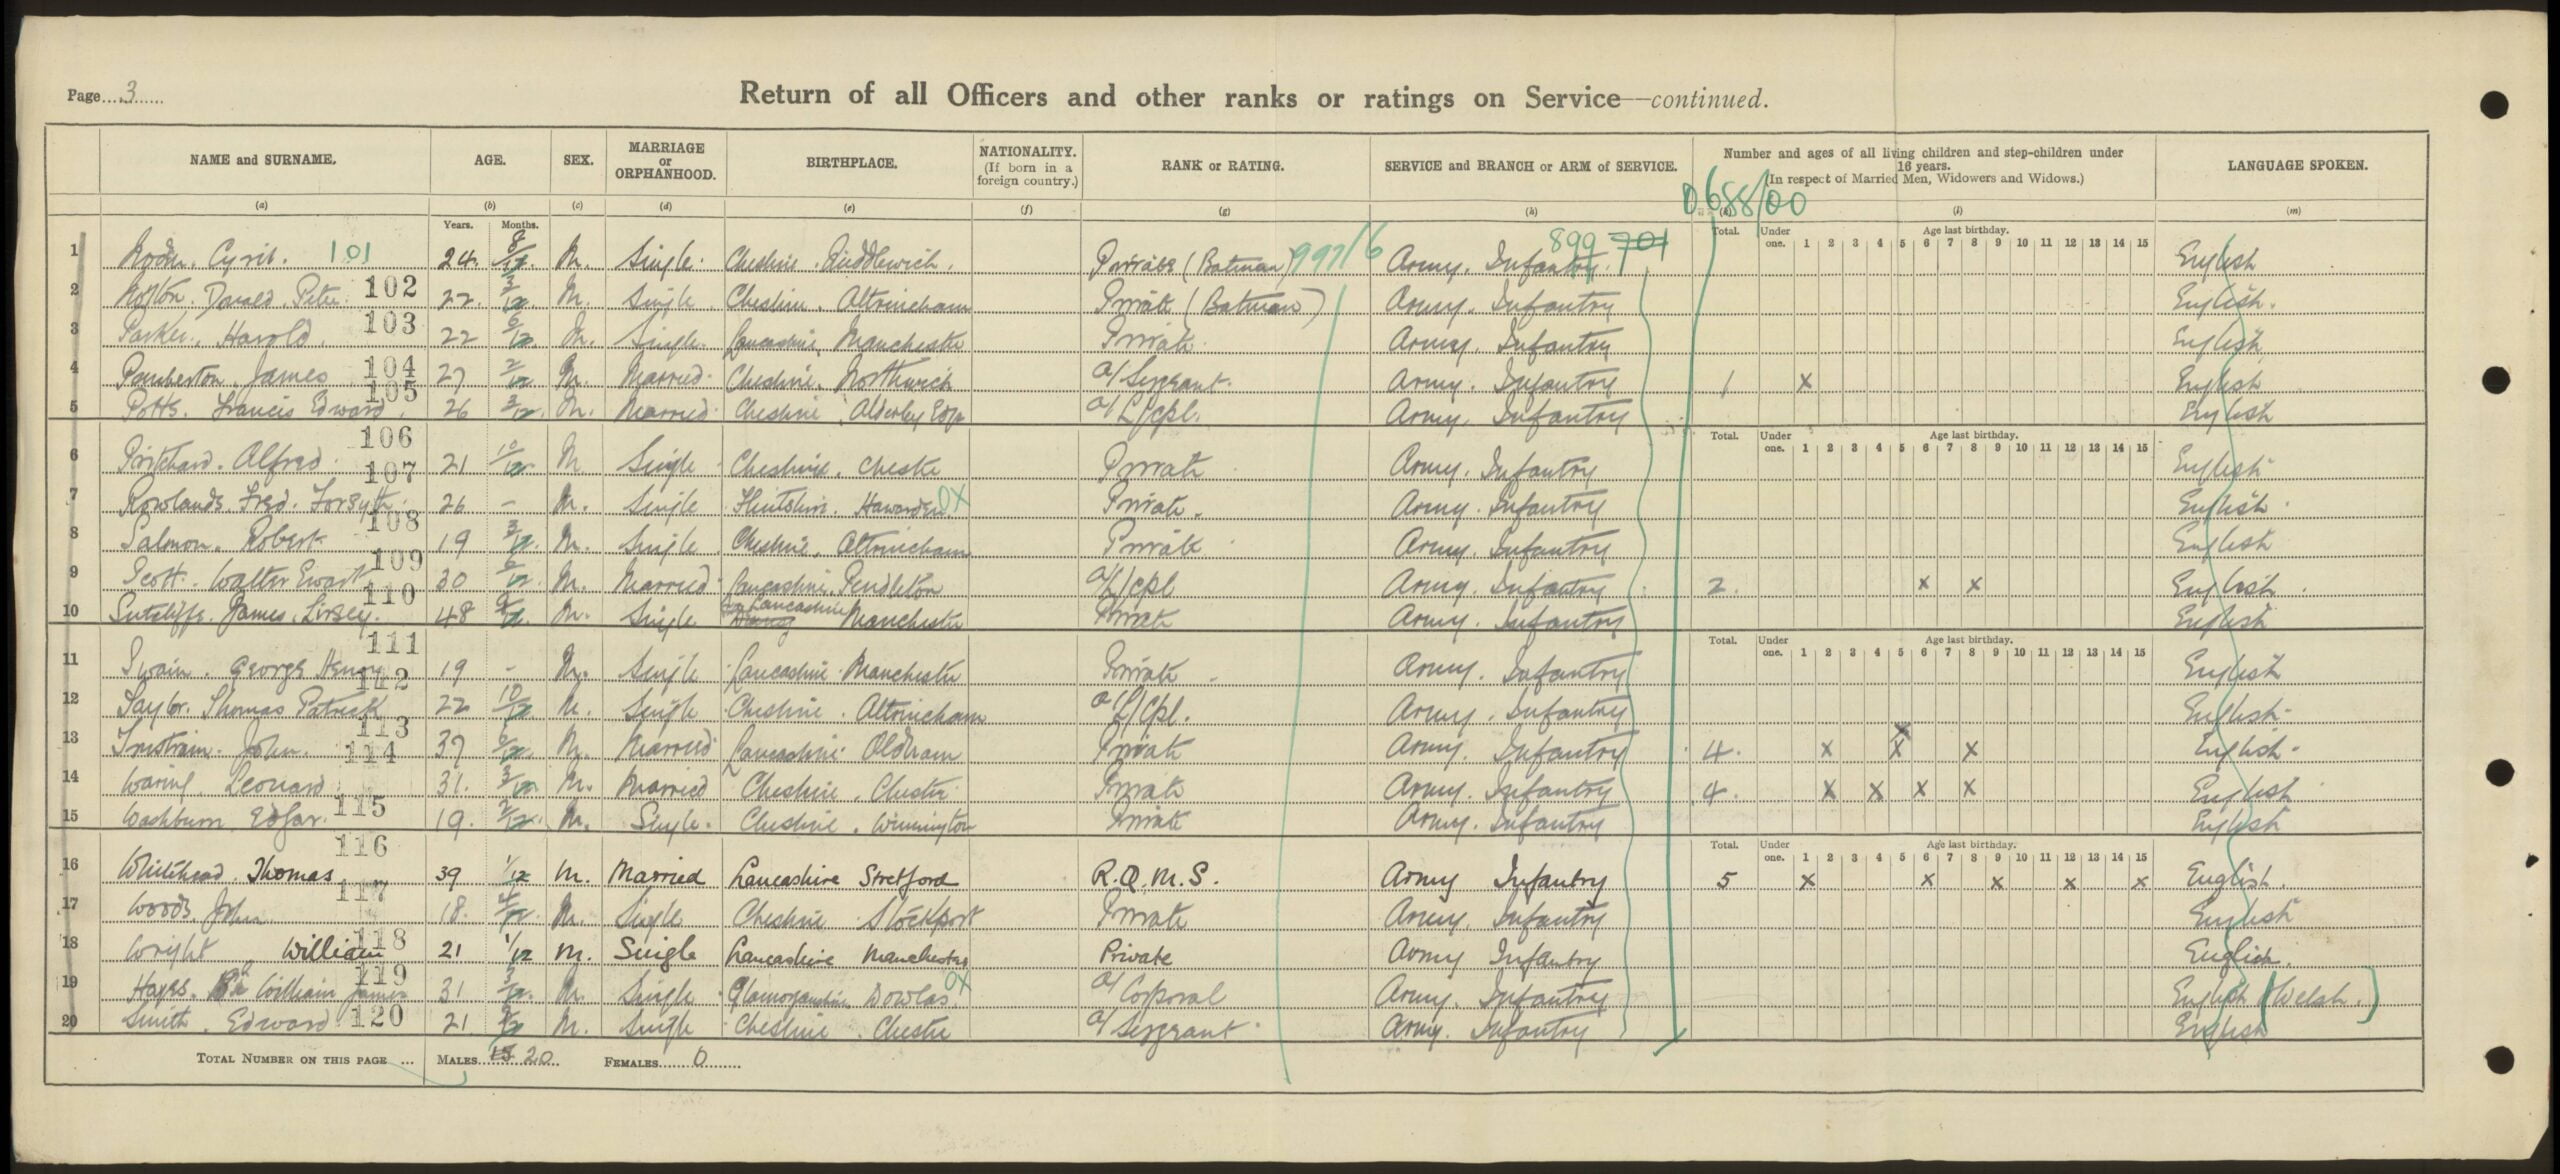 Page 3
Return of all Officers and other ranks or ratings on Service—continued.
NAME and SURNAME. AGE. SEX. MARRIAGE or ORPHANHOOD. BIRTHPLACE. NATIONALITY. (If born in a foreign country.) RANK or RATING. SERVICE and BRANCH or ARM of SERVICE. Number and ages of all living children and step-children under 16 years. (In respect of Married Men, Widowers and Widows.) LANGUAGE SPOKEN.
0688/00
(a) (b) (c) (d) (e) (f) (g) (h) (i) (m)
Years. Months. 899 701 Total. Under one. Age last birthday. 1 2 3 4 5 6 7 8 9 10 11 12 13 14 15
1 Cyril. 101 24 8/12 M. Single. Cheshire. Middlewich. Private (Batman) 997/6 Army. Infantry. English
2 Donald Peter 102 22 3/12 M. Single. Cheshire. Altrincham Private (Batman) Army. Infantry English.
3 Parker. Harold. 103 22 6/12 M. Single. Lancashire. Manchester Private. Army. Infantry English
4 Pemberton. James 104 27 2/12 M. Married. Cheshire. Northwich a/Sergeant. Army. Infantry 1 x English
5 Potts. Francis Edward. 105 26 3/12 M. Married. Cheshire. Alderley Edge a/L/cpl. Army. Infantry English
Total. Under one. Age last birthday. 1 2 3 4 5 6 7 8 9 10 11 12 13 14 15
6 Pritchard. Alfred. 106 21 10/12 M Single. Cheshire. Chester Private Army. Infantry English
7 Rowlands. Fred. Forsyth. 107 26 - M. Single Flintshire. Hawarden. OX Private. Army. Infantry English.
8 Salmon. Robert 108 19 3/12 M. Single Cheshire. Altrincham Private Army. Infantry English
9 Scott. Walter Ewart 109 30 6/12 M. Married. Lancashire. Pendleton a/L/cpl Army. Infantry 2. x x English.
10 Sutcliffe. James. Livsey. 110 48 M. Single Lancashire Manchester Private Army. Infantry English
Total. Under one. Age last birthday. 1 2 3 4 5 6 7 8 9 10 11 12 13 14 15
11 Swain. George Henry 111 19 - M. Single Lancashire. Manchester Private Army. Infantry English
12 Taylor. Thomas Patrick 112 22 10/12 M. Single Cheshire. Altrincham a/L/Cpl. Army. Infantry English.
13 John. 113 37 6/12 M. Married. Lancashire. Oldham Private Army. Infantry 4. x x x x English.
14 Waring. Leonard 114 31. 3/12 M. Married Cheshire. Chester Private Army. Infantry 4. x x x x English
15 Washburn. Edgar. 115 19. 2/12 M. Single. Cheshire. Winnington Private Army. Infantry English
Total. Under one. Age last birthday. 1 2 3 4 5 6 7 8 9 10 11 12 13 14 15
16 Whitehead. Thomas 116 39 1/12 M. Married Lancashire Stretford R.Q.M.S. Army Infantry 5 x x x x x English.
17 Woods John 117 18. 4/12 M. Single Cheshire. Stockport Private Army. Infantry English
18 Wright William 118 21 1/12 M. Single Lancashire Manchester Private Army Infantry English.
19 Hayes. William James 119 31 3/12 M. Single. Glamorganshire Dowlais. OX a/Corporal Army. Infantry English (Welsh.)
20 Smith. Edward 120 21 M. Single Cheshire. Chester a/Sergeant. Army. Infantry English
TOTAL NUMBER ON THIS PAGE ... MALES 15 20 FEMALES 0